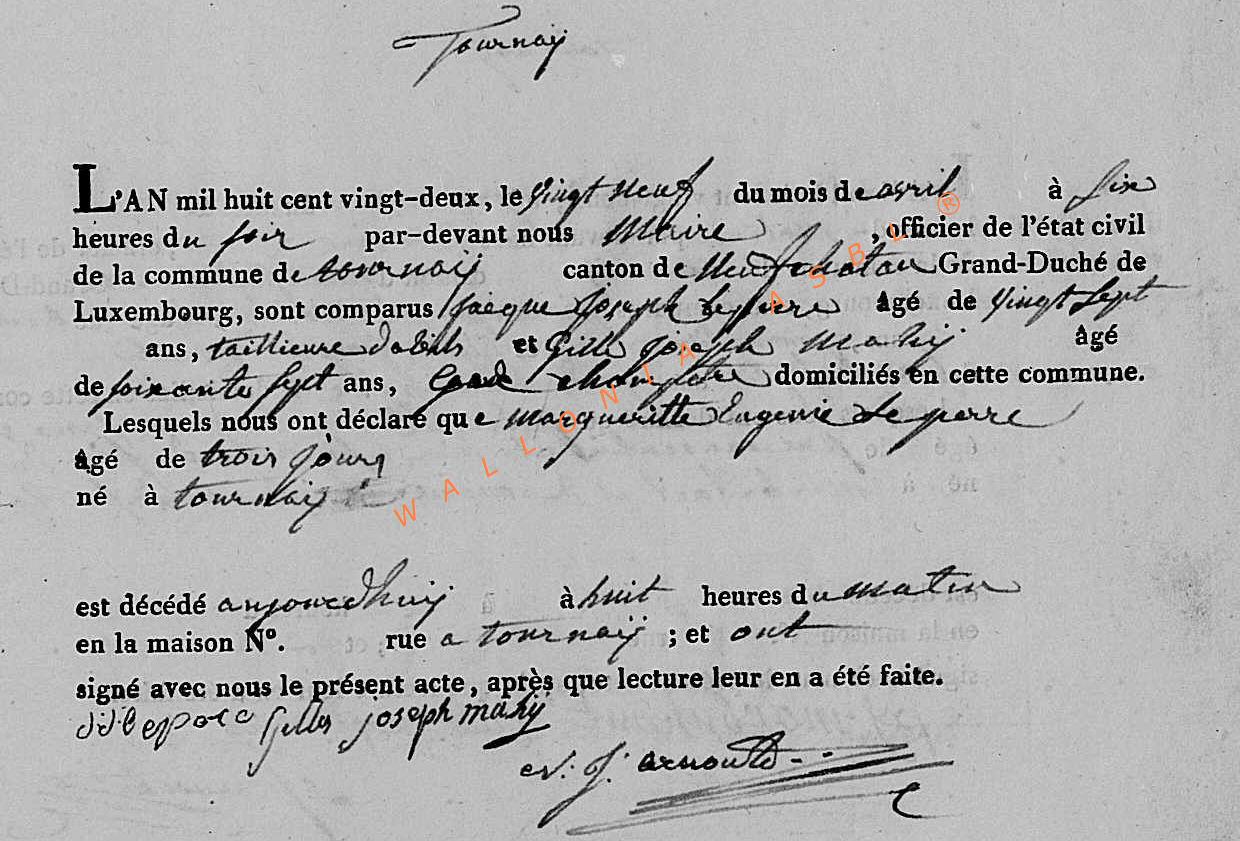 Tournaÿ
L'AN mil huit cent vingt-deux, le vingt neuf du mois de avril à six
heures du soir par-devant nous Maire , officier de l'état civil
de la commune de tournaÿ canton de Neufchatau Grand-Duché de
Luxembourg, sont comparus Jacque Joseph Lepere âgé de vingt sept
ans, taillieure dabits et Gille Joseph Mahÿ âgé
de soixante sept ans, champetre domiciliés en cette commune.
Lesquels nous ont déclaré que margueritte Eugenie Leperre
âgé de trois jours
né à tournaÿ
est décédé aujourdhuÿ à huit heures du matin
en la maison Nº. rue a tournaÿ ; et ont
signé avec nous le présent acte, après que lecture leur en a été faite.
Gilles joseph mahÿ
j. arnould
WALLONIA ASBL ®